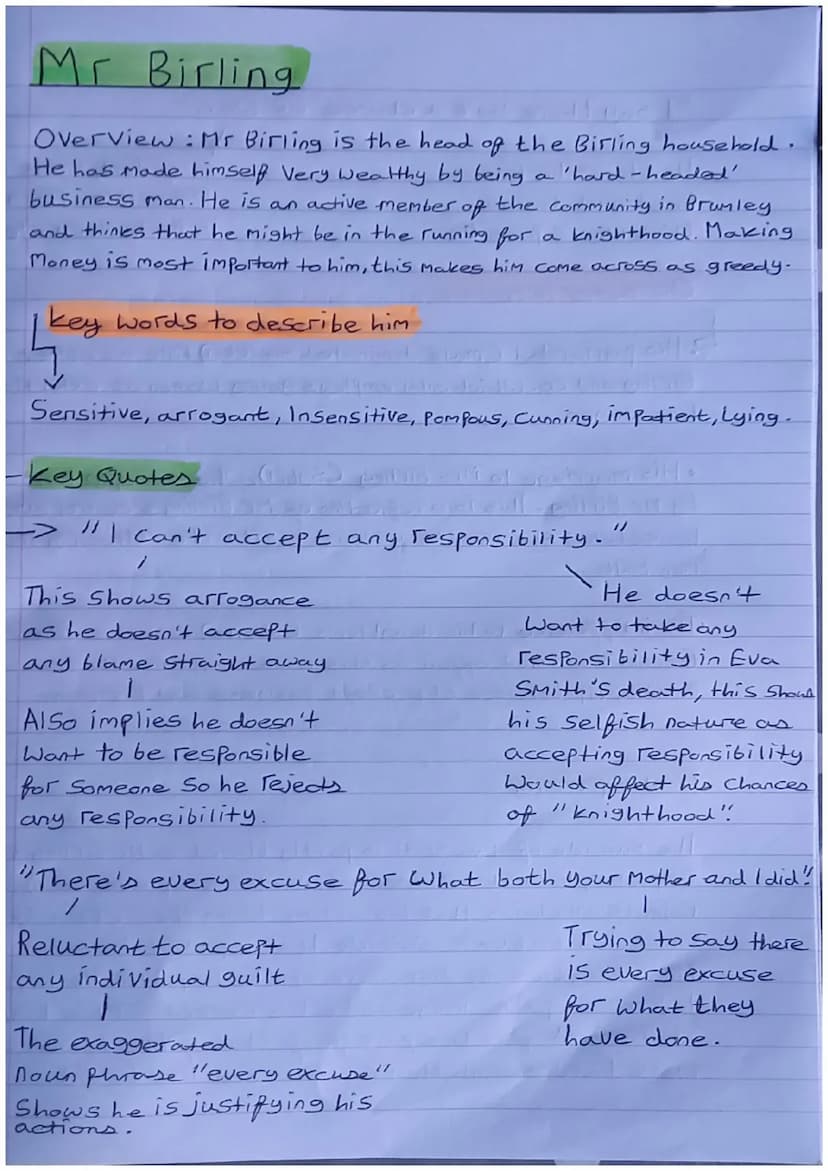 Mr Birling
Overview : Mr Birling is the head of the Birling household.
He has made himself very wealthy by being a 'hard-headed'
business man. He is an active member of the community in Brumley
and thinks that he might be in the running for a knighthood. Making
Money is most important to him, this makes him come across as greedy.
Key words to describe him
Sensitive, arrogant, Insensitive, Pompous, Cunning, impatient, Lying.
- Key Quotes
→ "I can't accept any responsibility."
This shows arrogance
as he doesn't accept
any blame straight away
Also implies he doesn't
want to be responsible
for someone so he rejects
any responsibility.
He doesn't
want to take any
responsibility in Eva
Smith's death, this shows
his selfish nature as
accepting responsibility
would affect his chances
of "knighthood".
"There's every excuse for what both your mother and I did"
Reluctant to accept
any individual guilt
The exaggerated
noun phrase "every excuse"
shows he is justifying his
actions.
Trying to say there
is every excuse
for what they
have done.